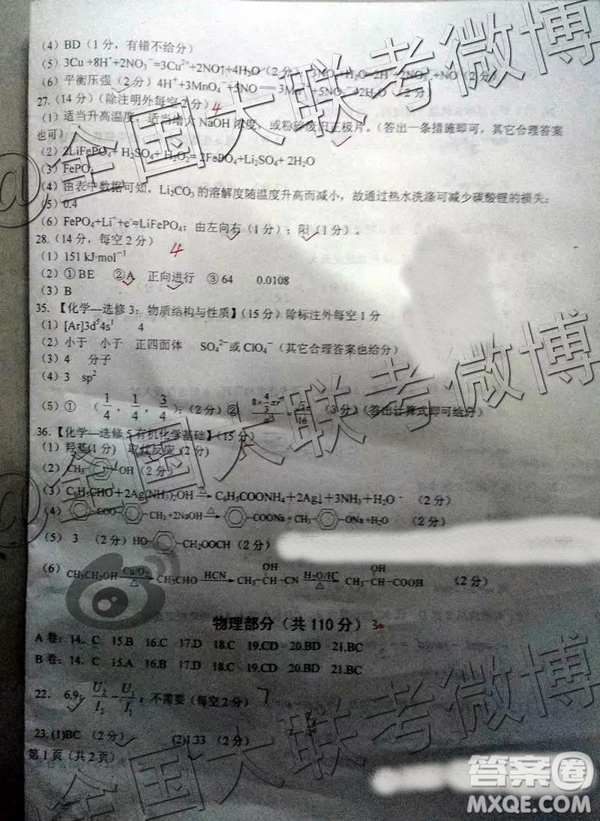 (4) BD(1分,有错不给分)
(5) 3Cu +8H⁺+2NO₃⁻=3Cu²⁺+2NO↑+4H₂O(2分)
(6) 平衡压强(2分)
27.(14分)(除注明外每空2分) 4
(1) 适当升高温度,适当增大NaOH浓度,或粉碎废旧正极片。(答出一条措施即可,其它合理答案
也可)
(2) 2LiFePO₄+ H₂SO₄+ H₂O₂= 2FePO₄+Li₂SO₄+ 2H₂O
(3) FePO₄
(4) 由表中数据可知,Li₂CO₃的溶解度随温度升高而减小,故通过热水洗涤可减少碳酸锂的损失;
(5) 0.4
(6) FePO₄+Li⁺+e⁻=LiFePO₄;由左向右(1分);阳(1分)。
28.(14分,每空2分) 4
(1) 151 kJ·mol⁻¹
(2) ①BE ②A 正向进行 ③64 0.0108
(3) B
35.【化学—选修3:物质结构与性质】(15分)除标注外每空1分
(1) [Ar]3d⁵4s¹ 4
(2) 小于 小于 正四面体 SO₄²⁻或ClO₄⁻(其它合理答案也给分)
(3) 4 分子
(4) 3 sp²
(5) ① (1/4,1/4,3/4);(2分)② (3分)(答出计算式即可给分)
36.【化学—选修5有机化学基础】(15分)
(1) 羟基(1分) 取代反应(2分)
(2) CH₃ OH(2分)
(3) C₆H₅CHO+2Ag(NH₃)₂OH → C₆H₅COONH₄+2Ag↓+3NH₃+H₂O (2分)
(4) COO CH₃+2NaOH △ → COONa+CH₃ ONa+H₂O (2分)
(5) 3 (2分) HO CH₂OOCH(2分)
(6) CH₃CH₂OH Cu/O₂ △ → CH₃CHO HCN → CH₃-CH(OH)-CN H₂O/H⁺ △ → CH₃-CH(OH)-COOH (2分)
物理部分(共110分)
A卷:14.C 15.B 16.C 17.D 18.C 19.CD 20.BD 21.BC
B卷:14.C 15.A 16.B 17.D 18.C 19.CD 20.BD 21.BC
22. 6.9; U₂/I₂ - U₁/I₁;不需要(每空2分) 7
23.(1)BC (2分) (2)1.33 (2分)
第1页(共2页)
@全国大联考微博
@全国大联考微博
全国大联考微博
答案圈
MXQE.COM